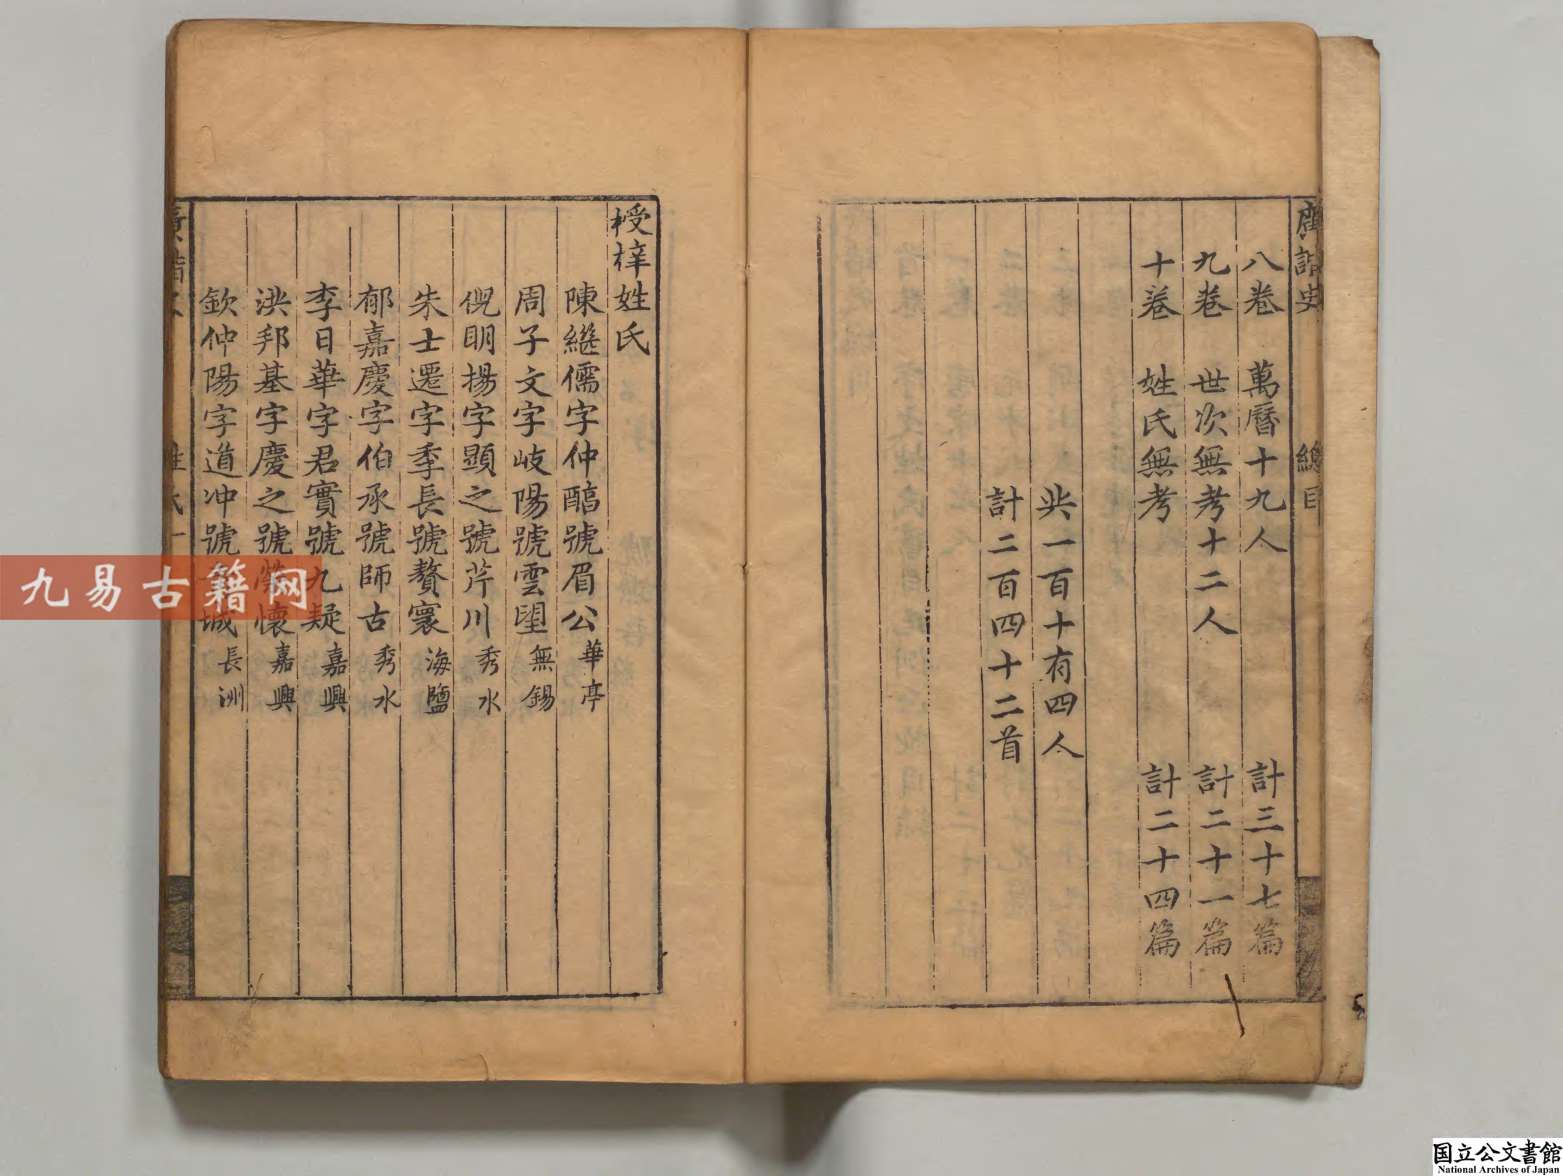 總目
八卷　萬曆十九人　計三十七篇
九卷　世次無考十二人　計二十一篇
十卷　姓氏無考　計二十四篇
共一百十有四人
計二百四十二首
授梓姓氏
陳繼儒字仲醕號眉公華亭
周子文字岐陽號雲朢無錫
倪明揚字顯之號芹川秀水
朱士遷字季長號贅寰海鹽
郁嘉慶字伯承號師古秀水
李日華字君實號九疑嘉興
洪邦基字慶之號懷嘉興
欽仲陽字道冲號城長洲
九易古籍网
国立公文書館
National Archives of Japan